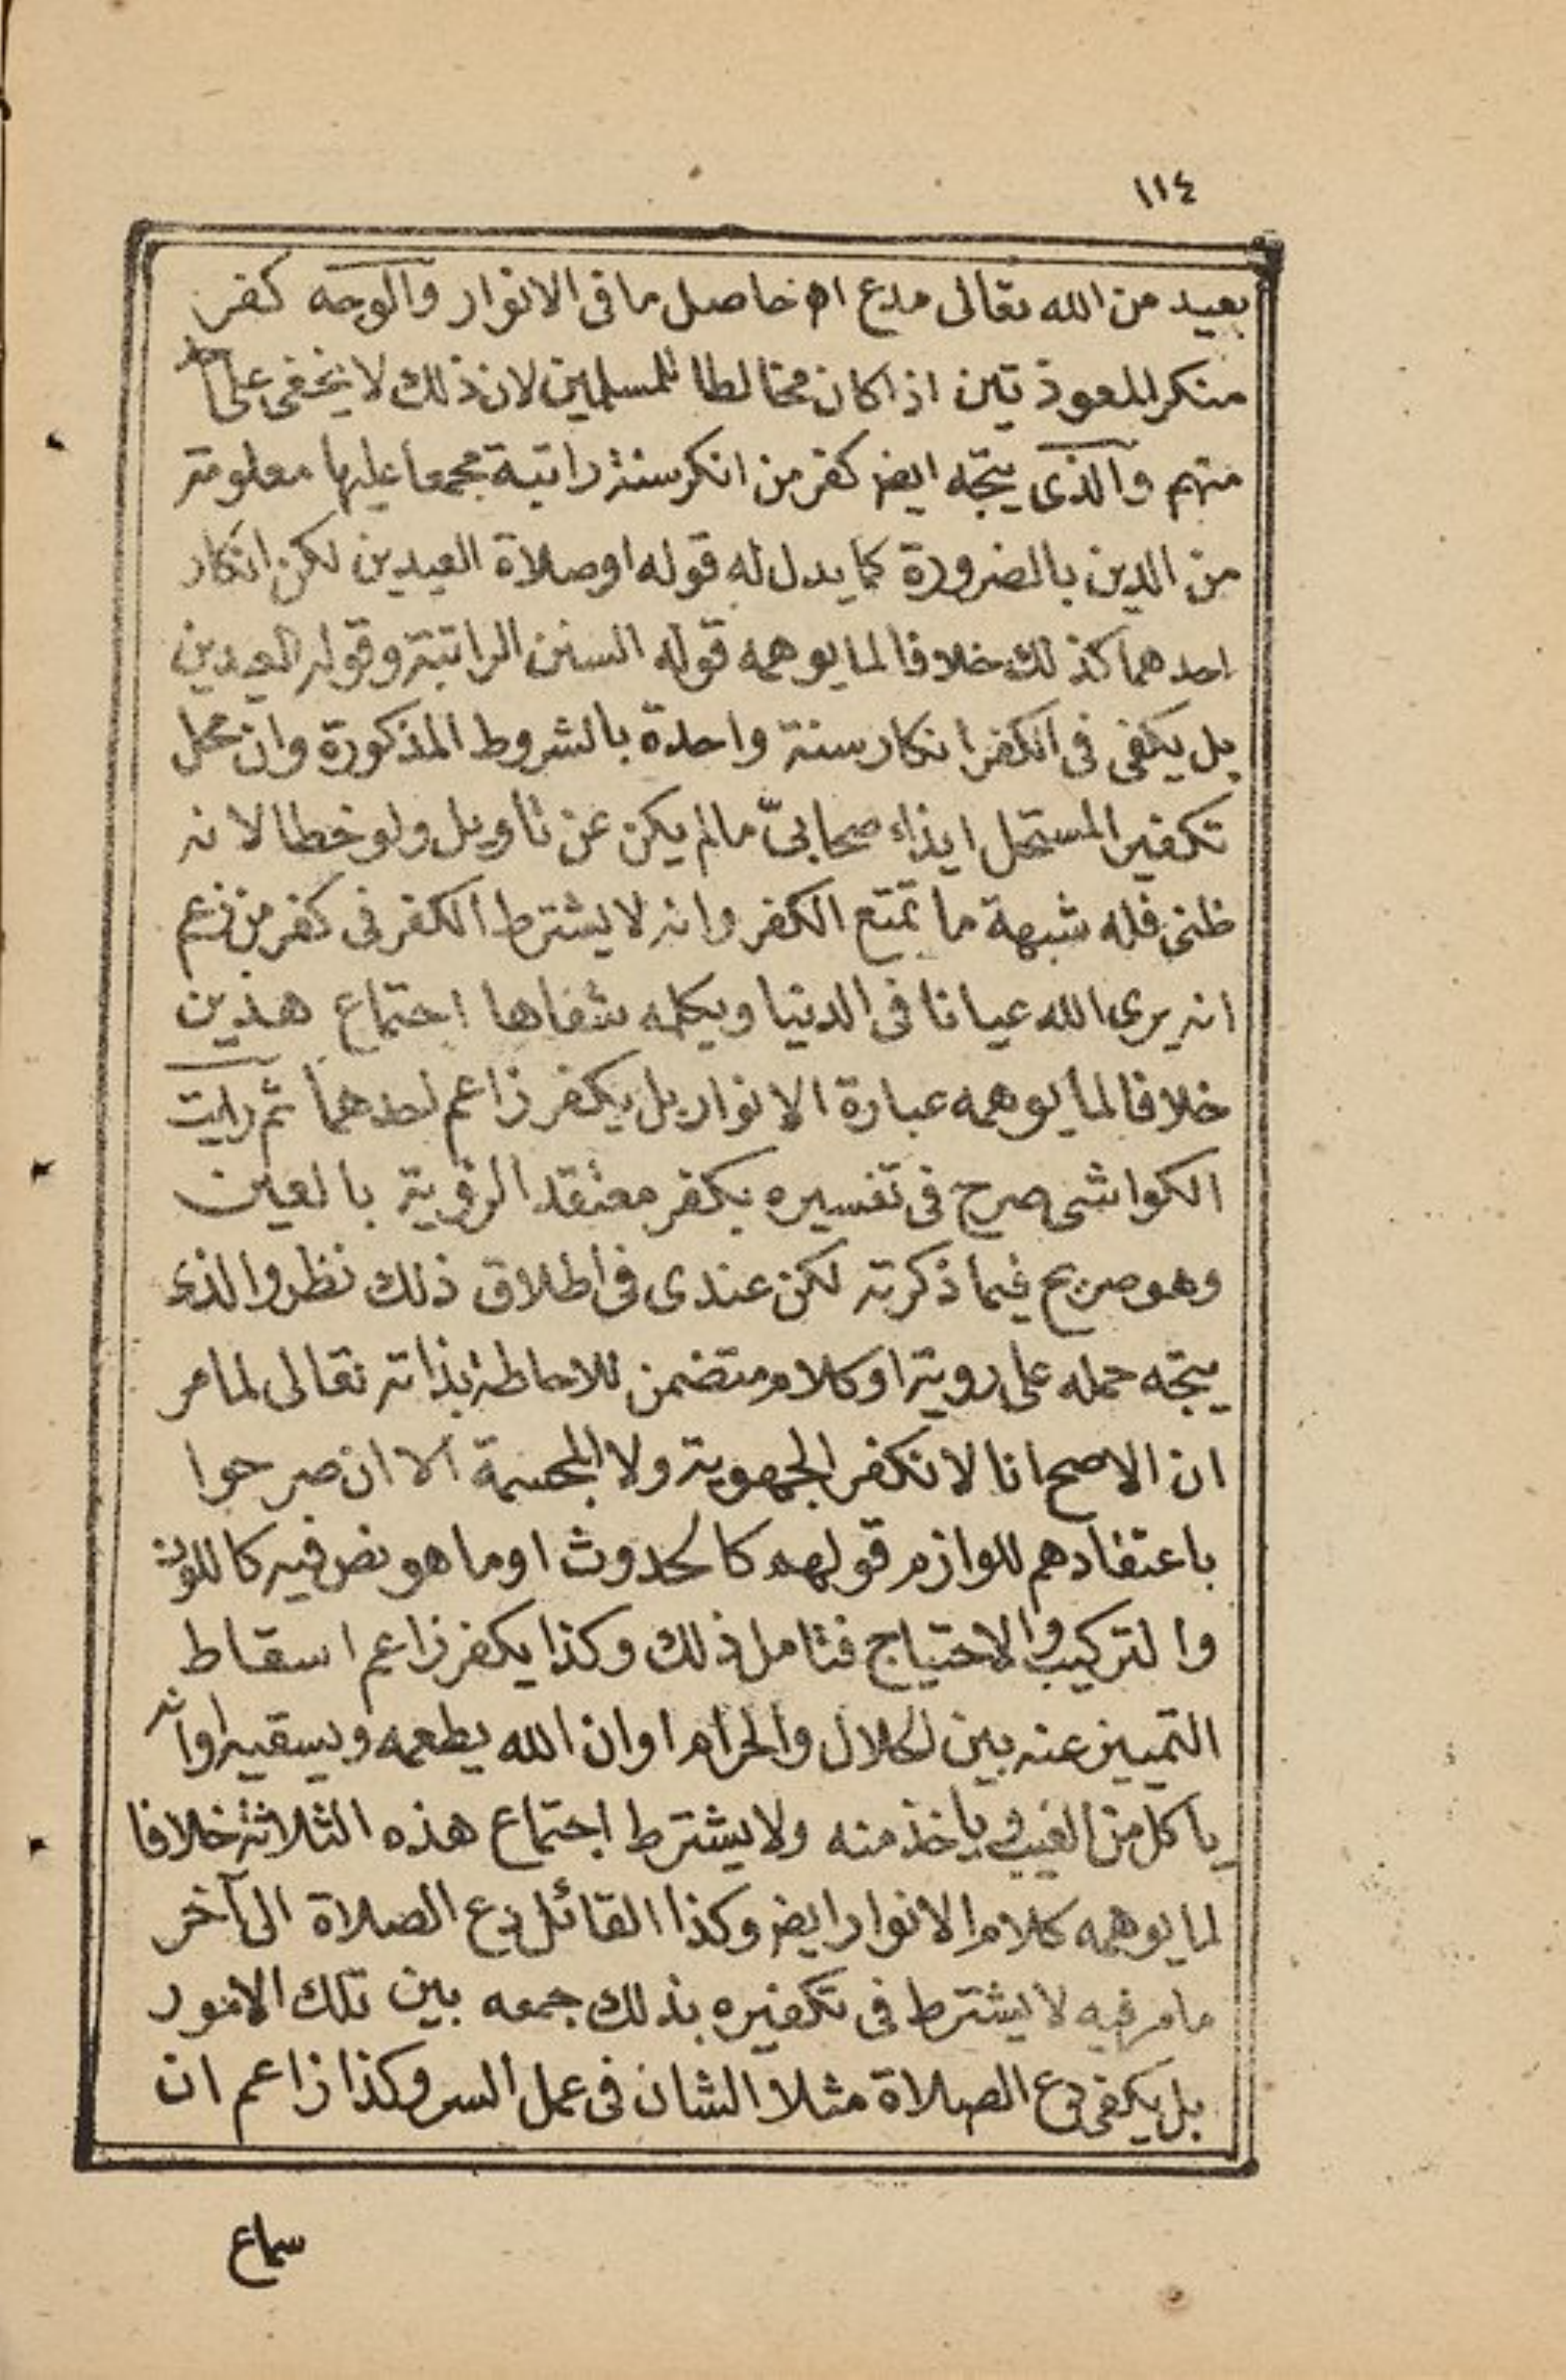 ١١٤
بعيد من الله تعالى مدع اه حاصل ما فى الانوار والوجه كفر
منكر المعوذتين اذا كان مخالطا للمسلمين لان ذلك لا يخفى على احد
منهم والذى يتجه ايضر كفر من انكر سنة راتبة مجمعا عليها معلومة
من الدين بالضرورة كما يدل له قوله او صلاة العيدين لكن انكار
احدهما كذلك خلافا لما يوهمه قوله السنن الراتبة وقوله العيدين
بل يكفى فى الكفر انكار سنة واحدة بالشروط المذكورة وان محل
تكفير المستحل ايذاء صحابىّ ما لم يكن عن تاويل ولو خطا لانه
ظنى فله شبهة ما تمنع الكفر وانه لا يشترط الكفر فى كفر من زعم
انه يرى الله عيانا فى الدنيا ويكلمه شفاها اجتماع هذين
خلافا لما يوهمه عبارة الانوار بل يكفر زاعم احدهما ثم رايت
الكواشى صرح فى تفسيره بكفر معتقد الرؤية بالعين
وهو صريح فيما ذكرته لكن عندى فى اطلاق ذلك نظر والذى
يتجه حمله على روية او كلام متضمن للاحاطة بذاته تعالى لما مر
ان الاصح انا لا نكفر الجهوية ولا المجسمة الا ان صرحوا
باعتقادهم للوازم قولهم كالحدوث او ما هو نص فيه كاللون
والتركيب والاحتياج فتامل ذلك وكذا يكفر زاعم اسقاط
التمييز عنه بين الحلال والحرام او ان الله يطعمه ويسقيه او انه
ياكل من الغيب وياخذ منه ولا يشترط اجتماع هذه الثلاثة خلافا
لما يوهمه كلام الانوار ايضر وكذا القائل دع الصلاة الى آخر
ما مر فيه لا يشترط فى تكفيره بذلك جمعه بين تلك الامور
بل يكفى دع الصلاة مثلا الشان فى عمل السر وكذا زاعم ان
سماع